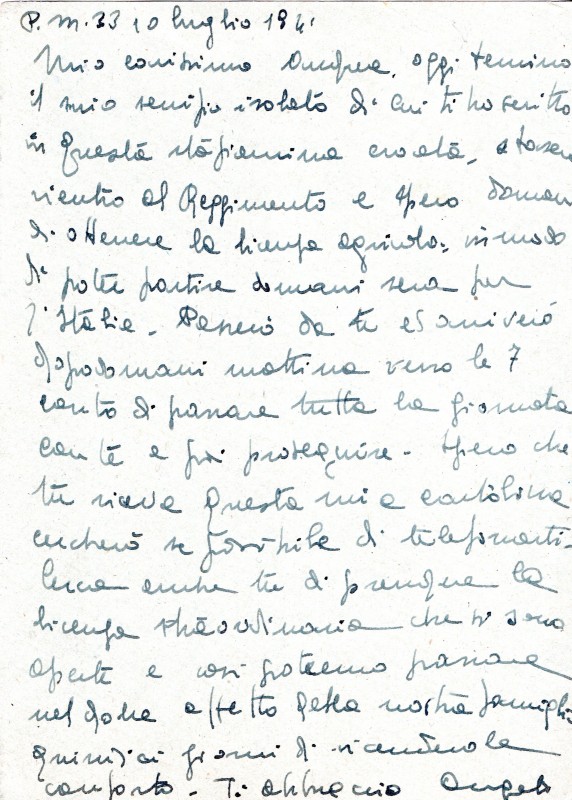 P.M. 33 10 luglio 194
Mio carissimo oggi termino
il mio servizio isolato di cui ti ho scritto
in questa stazioncina croata, stasera
rientro al Reggimento e spero doman
di ottenere la licenza agricola, in modo
di poter partire domani sera per
l'Italia. Passerò da te ed arriverò
dopodomani mattina verso le 7
conto di passare tutta la giornata
con te e poi proseguire. Spero che
tu riceva questa mia cartolina
cercherò se possibile di telefonarti.
Cerca anche tu di prendere la
licenza straordinaria che si sono
aperte e così potremo passare
nel dolce affetto della nostra famiglia
quindici giorni di vicendevole
conforto. Ti abbraccio Angelo